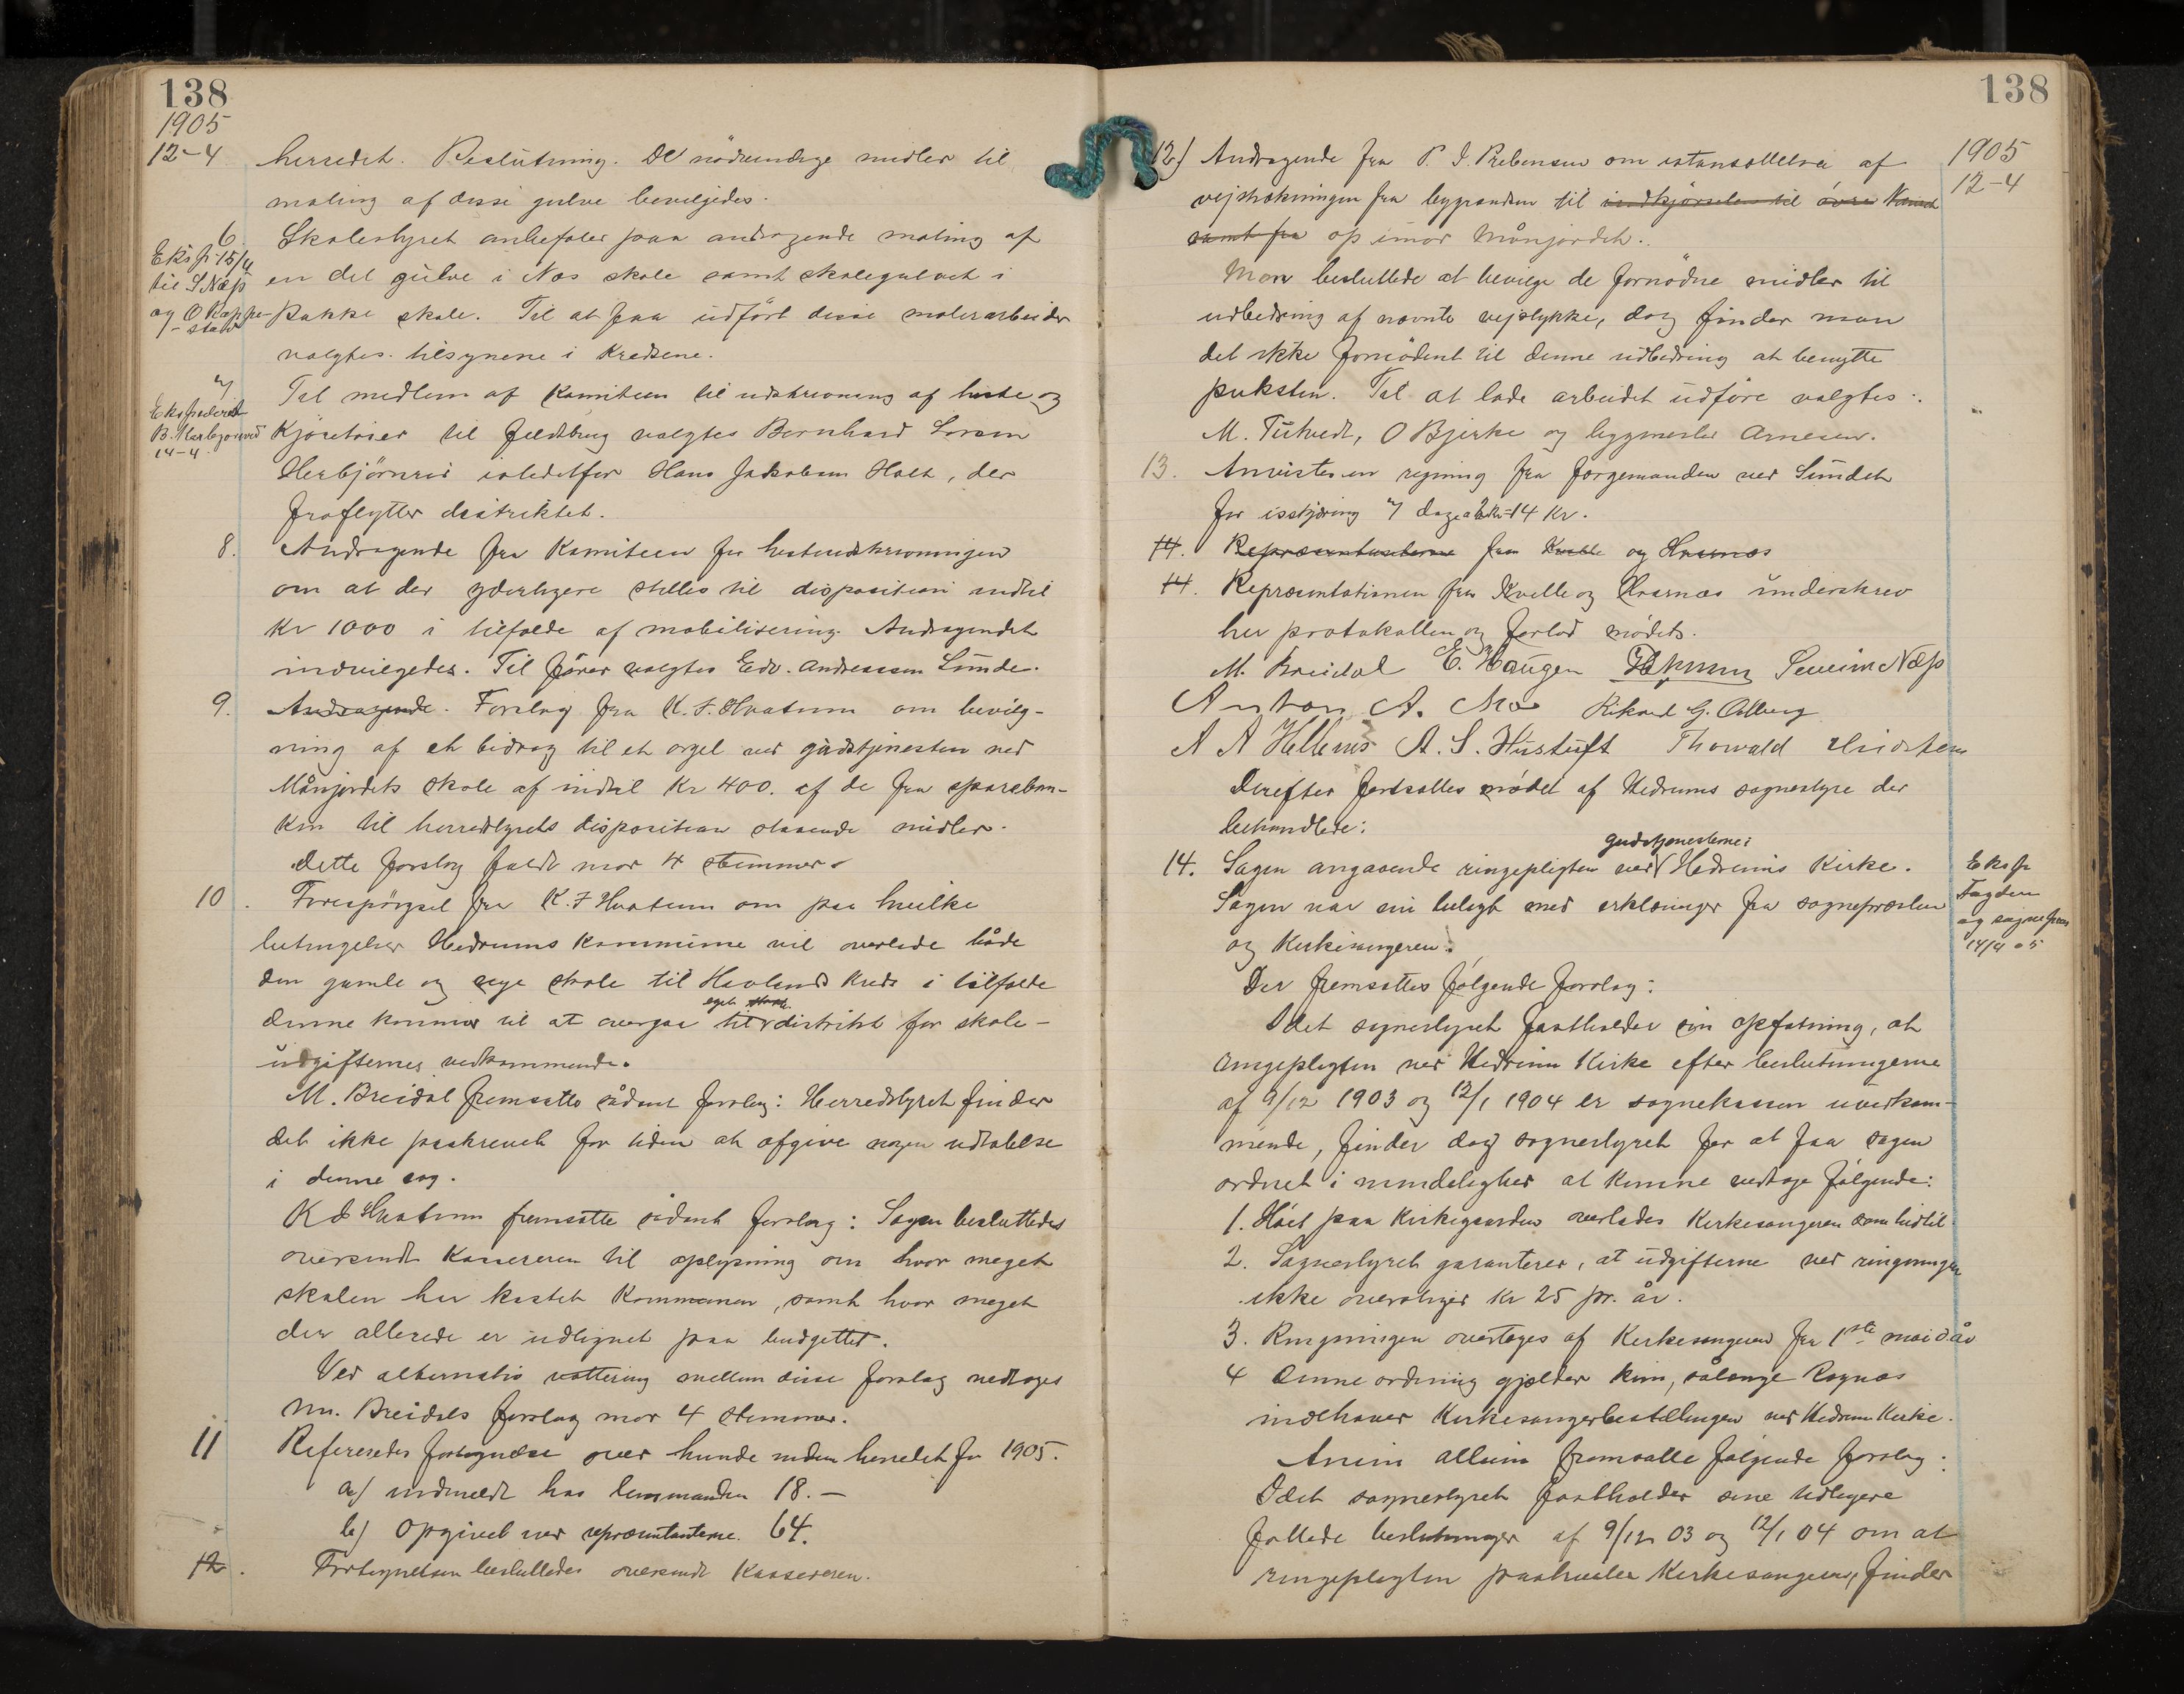 138
1905
12-4
herredet. Beslutning. De nödvendige midler til
maling af disse gulve bevilgedes.
6
Eksp. 15/4
til S Næss
og O Kæppe-
stad
Skolestyret anbefaler paa andragende maling af
en del gulve i Nes skole samt skolegulvet i
skole. Til at faa udfört disse malerarbeider
valgtes tilsynene i Kredsene.
7
Ekspederet
B.
14-4
Til medlem af Komiteen til udskrivning af heste og
Kjöretöier til feldtbrug valgtes Bernhard
Herbjörnröd istedetfor Hans Jakobsen Holt, der
fraflytter distriktet.
8.
Andragende fra Komiteen for hesteudskrivningen
om at der yderligere stilles til disposition indtil
Kr 1000 i tilfælde af mobilisering. Andragendet
indvilgedes. Til förer valgtes Edv. Andreassen Lunde.
9.
Andragende. Forslag fra K. F. Hvatum om bevilg-
ning af et bidrag til et orgel ved gudstjenesten ved
Månjordets skole af indtil Kr 400. af de fra spareban-
ken til herredstyrets disposition staaende midler.
Dette forslag faldt mod 4 stemmer.
10.
Forespörgsel fra K. F Hvatum om paa hvilke
betingelser Hedrums Kommune vil overlade både
den gamle og nye skole til Havlands Kreds i tilfælde
denne kommer til at overgaa til eget distrikt for skole-
udgifternes vedkommende.
M. Breidal fremsatte sådant forslag: Herredstyret finder
det ikke paakrevet for tiden at afgive nogen udtalelse
i denne sag.
K F Hvatum fremsatte sådant forslag: Sagen besluttedes
oversendt Kassereren til oplysning om hvor meget
skolen har kostet Kommunen, samt hvor meget
der allerede er udlignet paa budgettet.
Ved alternativ vottering mellem disse forslag vedtoges
M. Breidals forslag mod 4 stemmer.
11
Refereredes fortegnelse over hunde inden herredet for 1905.
a) indmeldt hos lensmanden 18.-
b) Opgivet ved repræsentanterne. 64.
12.
Fortegnelsen besluttedes oversendt Kassereren.
138
1905
12-4
12) Andragende fra P. I. Prebensen om istandsættelse af
vejstrækningen fra bygrændsen til indkjörselen til övre Nanset
samt fra op imod Månjordet.
Man besluttede at bevilge de fornödne midler til
udbedring af nævnte vejstykke, dog finder man
det ikke fornödent til denne udbedring at benytte
puksten. Til at lade arbeidet udföre valgtes:
M. Tutvedt, O Bjerke og bygmester Arnesen.
13. Anvistes en regning fra færgemanden ved Sundet
for isskjæring 7 dage a 2 kr = 14 Kr.
14. Repræsentanterne fra Kvelle og Hvarnes
14. Repræsentationen fra Kvelle og Hvarnes underskrev
her protokollen og forlod mödet.
M. Breidal E. Haugen Severin Næss
Anton A. Moe Rikard G. Aalberg
A A Hellenes A. S. Hustuft Thorvald
Derefter fortsattes mödet af Hedrums sognestyre der
behandlede:
14. Sagen angaaende ringepligten ved gudstjenesterne i Hedrums Kirke.
Eksp
Fogden
og sognepres
14/4 05
Sagen var nu belagt med erklæringer fra sognepresten
og Kirkesangeren.
Der fremsattes fölgende forslag:
Idet sognestyret fastholder sin opfatning, at
ringepligten ved Hedrum Kirke efter beslutningerne
af 9/12 1903 og 12/1 1904 er sognekassen uvedkom-
mende, finder dog sognestyret for at faa sagen
ordnet i mindelighed at kunne vedtage fölgende:
1. Höet paa Kirkegaarden overlades Kirkesangeren som hidtil.
2. Sognestyret garanterer, at udgifterne ved ringningen
ikke overstiger Kr 25 pr. år.
3. Ringningen overtages af Kirkesangeren fra 1ste mai d år
4 Denne ordning gjælder kun, sålænge Rognes
indehaver Kirkesangerbestillingen ved Hedrum Kirke.
fremsatte fölgende forslag:
Idet sognestyret fastholder sine tidligere
fattede beslutninger af 9/12 03 og 12/1 04 om at
ringepligten paahviler Kirkesangeren, finder